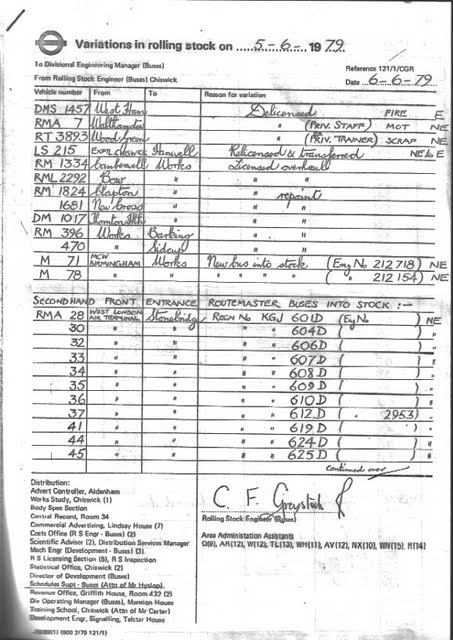 Variations in rolling stock on 5-6-1979.
To Divisional Engineering Manager (Buses)
Reference 121/1/CGR
From Rolling Stock Engineer (Buses) Chiswick
Date 6-6-79
Vehicle number From To Reason for variation
DMS 1457 West Ham Delicensed FIRE E
RMA 7 Walthamstow " (PRIV. STAFF) MOT NE
RT 3893 Wood Green " (PRIV. TRAINER) SCRAP NE
LS 215 EXPTL CHISWICK Hanwell Relicensed & transferred NE to E
RM 1334 Camberwell Works Licensed overhaul
RML 2292 Bow " " "
RM 1824 Clapton " " repaint
1681 New Cross " " "
DM 1017 Thornton Hth " " "
RM 396 Works Barking " "
470 " Sidcup " "
M 71 MCW BIRMINGHAM Works New bus into stock (Eng No 212718) NE
M 78 " " " " " " ( " 212154) NE
SECONDHAND FRONT ENTRANCE ROUTEMASTER BUSES INTO STOCK :-
RMA 28 WEST LONDON AIR TERMINAL Stonebridge REGN No KGJ 601D (Eng No ) NE
30 " " 604D ( ) "
32 " " 606D ( ) "
33 " " 607D ( ) "
34 " " 608D ( ) "
35 " " 609D ( ) "
36 " " 610D ( ) "
37 " " 612D ( " 2953) "
41 " " 619D ( ) "
44 " " 624D ( ) "
45 " " 625D ( ) "
Continued over
Distribution:
Advert Controller, Aldenham
Works Study, Chiswick (1)
Body Spec Section
Central Record, Room 34
Commercial Advertising, Lindsay House (7)
Costs Office (R S Engr - Buses) (2)
Scientific Adviser (2), Distribution Services Manager
Mech Engr (Development - Buses) (3)
R S Licensing Section (5), R S Inspection
Statistical Office, Chiswick (2)
Director of Development (Buses)
Schedules Supt - Buses (Attn of Mr Hyslop)
Revenue Office, Griffith House, Room 432 (2)
Die Operating Manager (Buses), Mansion House
Training School, Chiswick (Attn of Mr Carter)
Development Engr, Signalling, Telstar House
Rolling Stock Engineer (Buses)
Area Administation Assistants
Q(9), AR(12), W(12), TL(13), WH(11), AV(12), NX(10), WN(15), H(14)